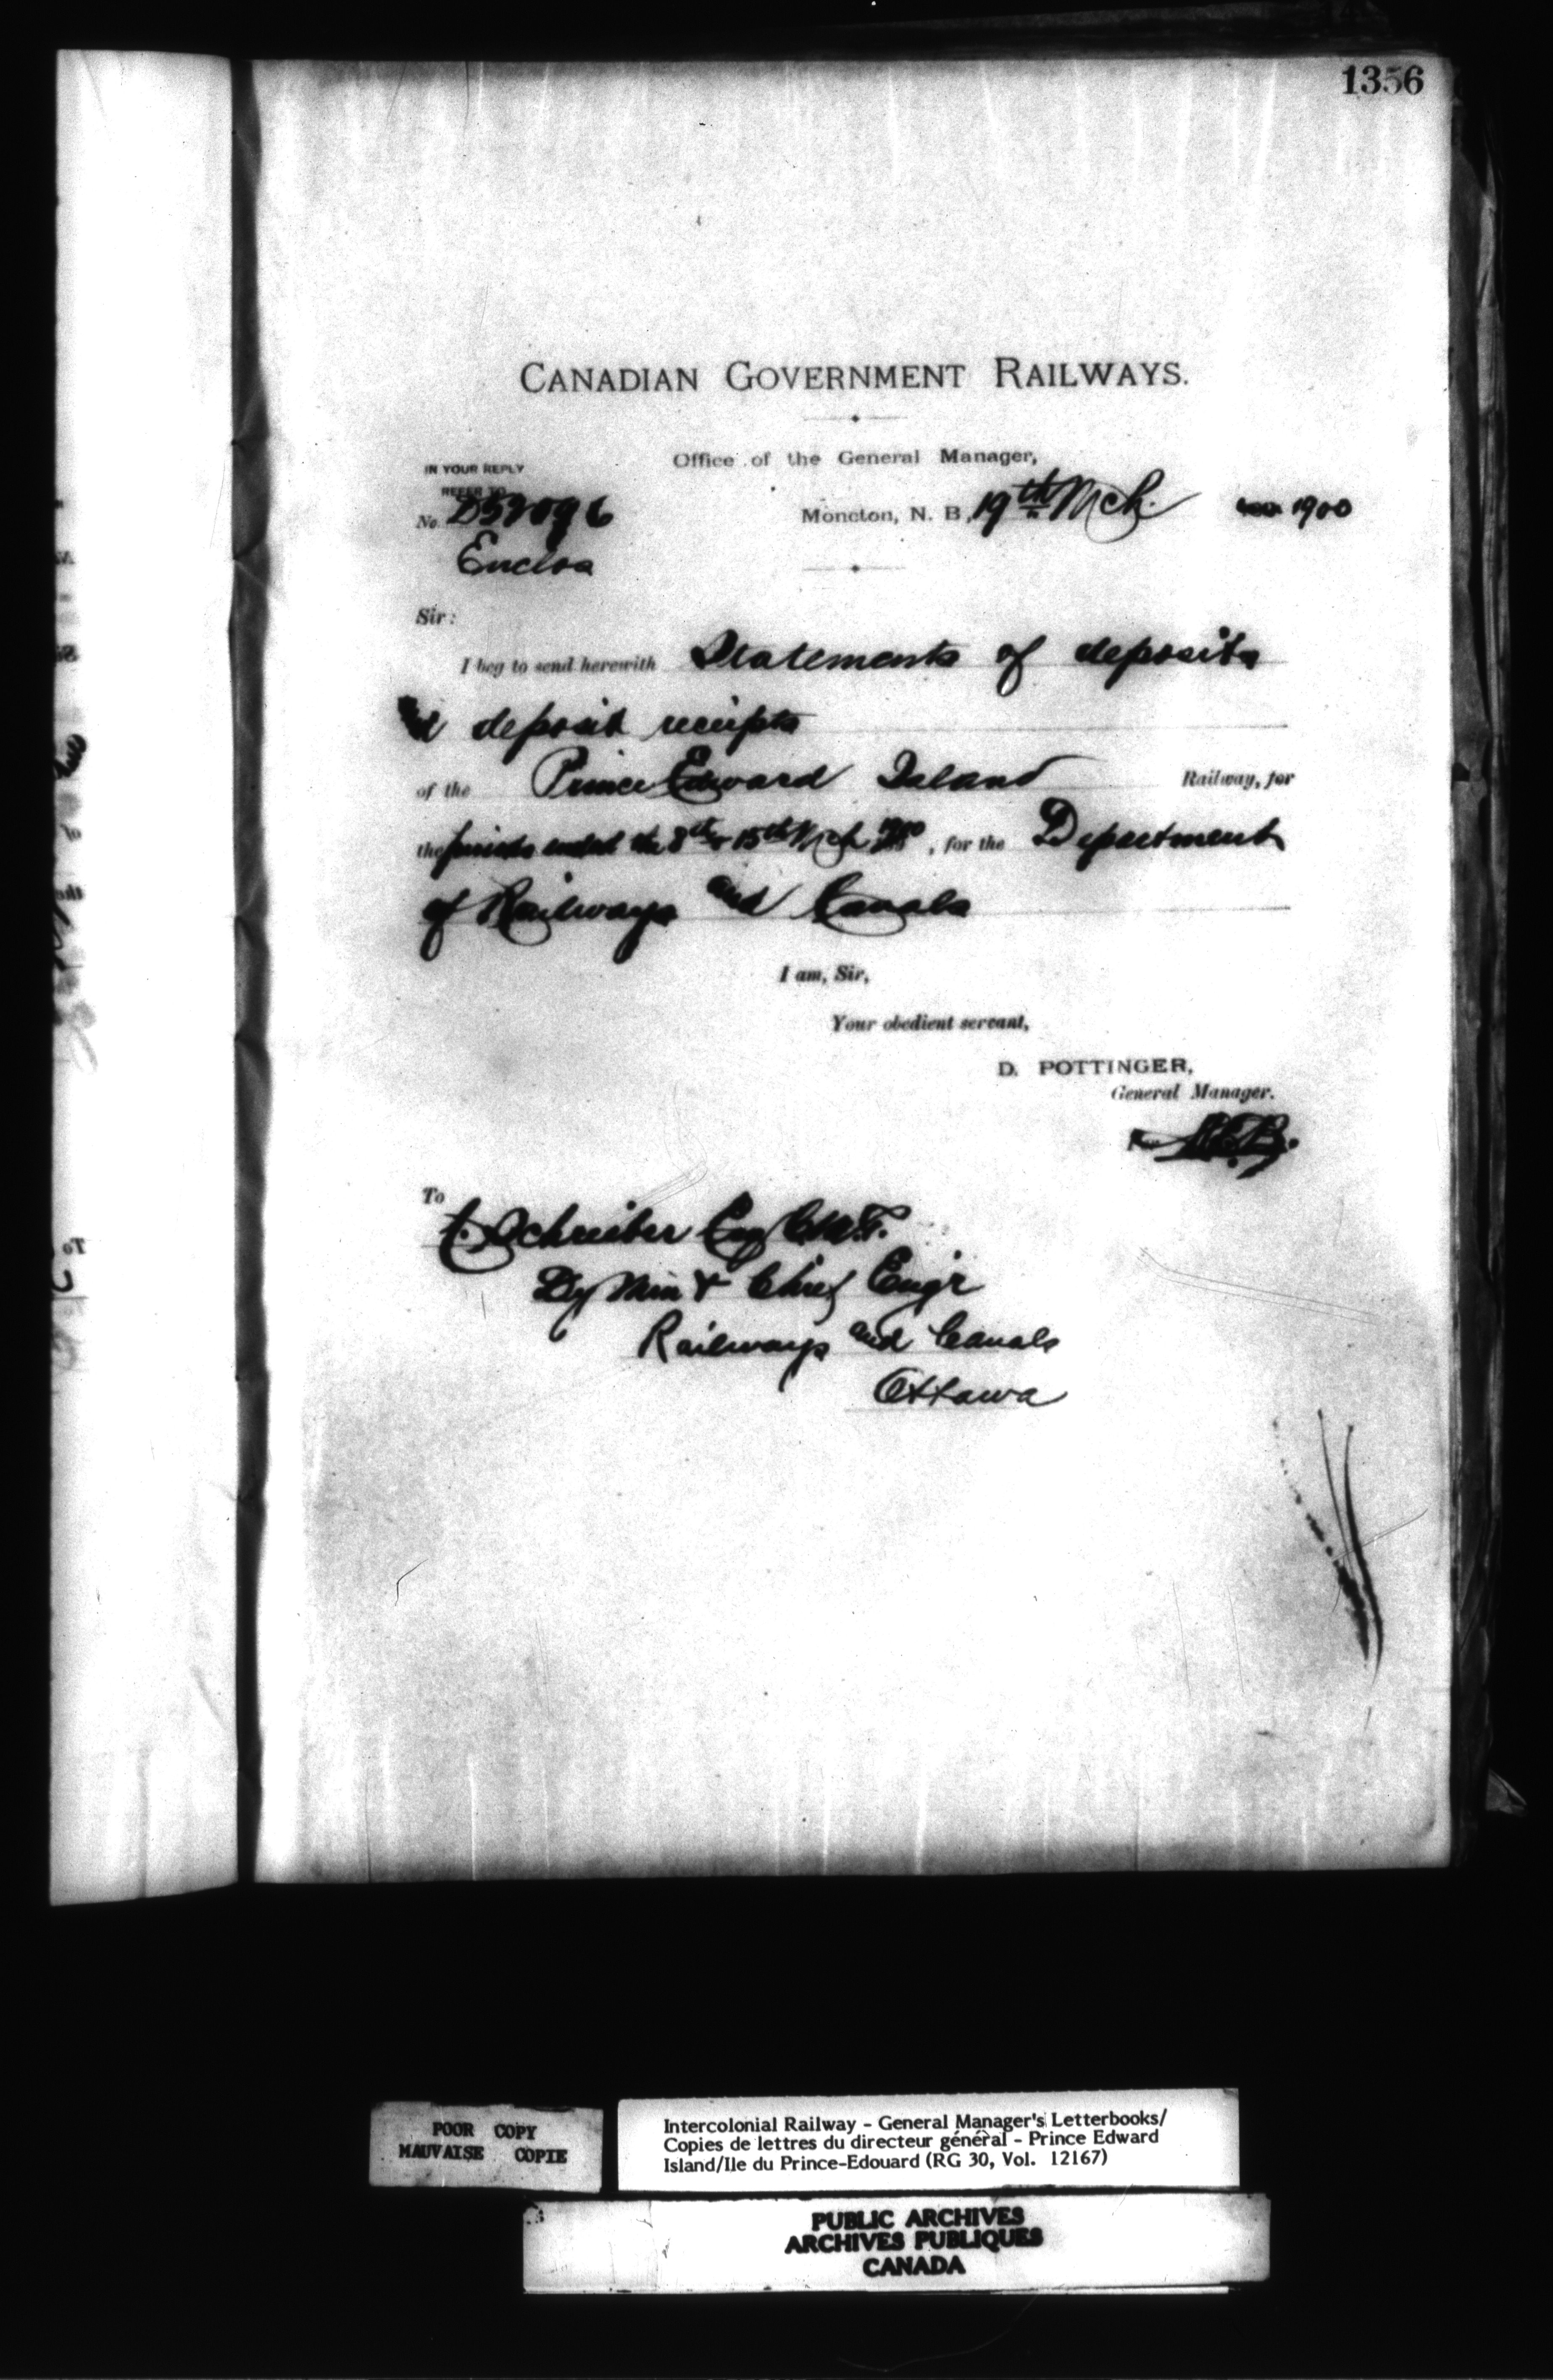 1356
CANADIAN GOVERNMENT RAILWAYS.
Office of the General Manager,
IN YOUR REPLY
REFER TO
No.
Moncton, N. B., 19th Mch. 1900
Enclos
Sir:
I beg to send herewith Statements of deposits
deposit receipts
of the Prince Edward Island Railway, for
the periods ended the 8th & 15th Mch 1900, for the Department
of Railways and Canals
I am, Sir,
Your obedient servant,
D. POTTINGER,
General Manager.
To
C. Schreiber Esq C.M.G.
Dy Min & Chief Engr
Railways and Canals
Ottawa
POOR COPY
MAUVAISE COPIE
Intercolonial Railway - General Manager's Letterbooks/
Copies de lettres du directeur général - Prince Edward
Island/Ile du Prince-Edouard (RG 30, Vol. 12167)
PUBLIC ARCHIVES
ARCHIVES PUBLIQUES
CANADA